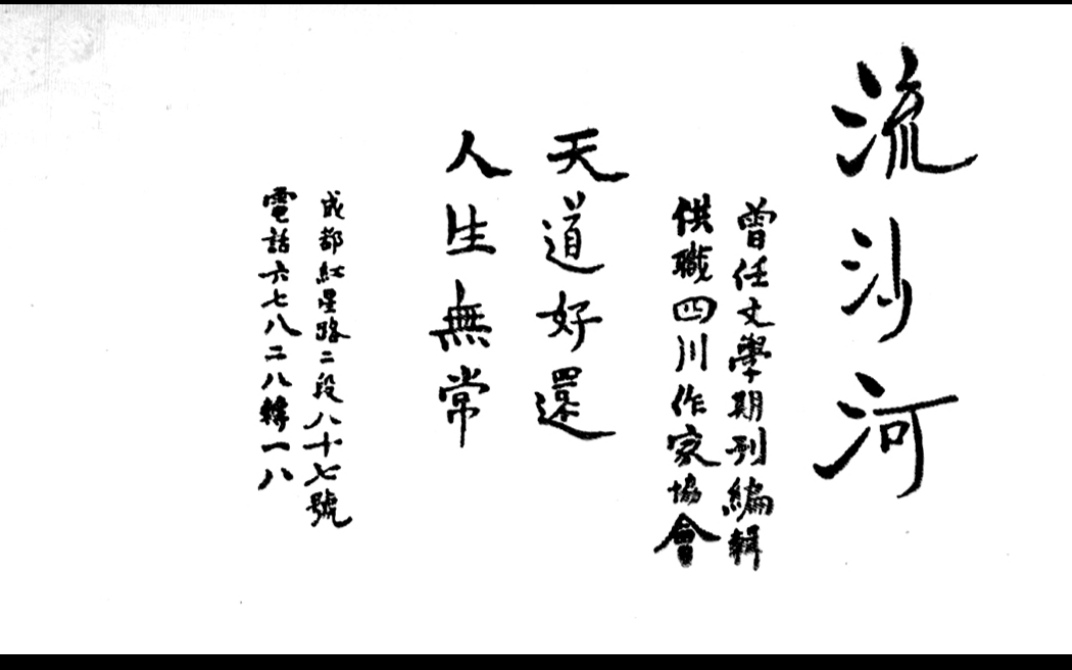 流沙河
曾任文學期刊編輯
供職四川作家協會
天道好還
人生無常
成都紅星路二段八十七號
電話六七八二八轉一八